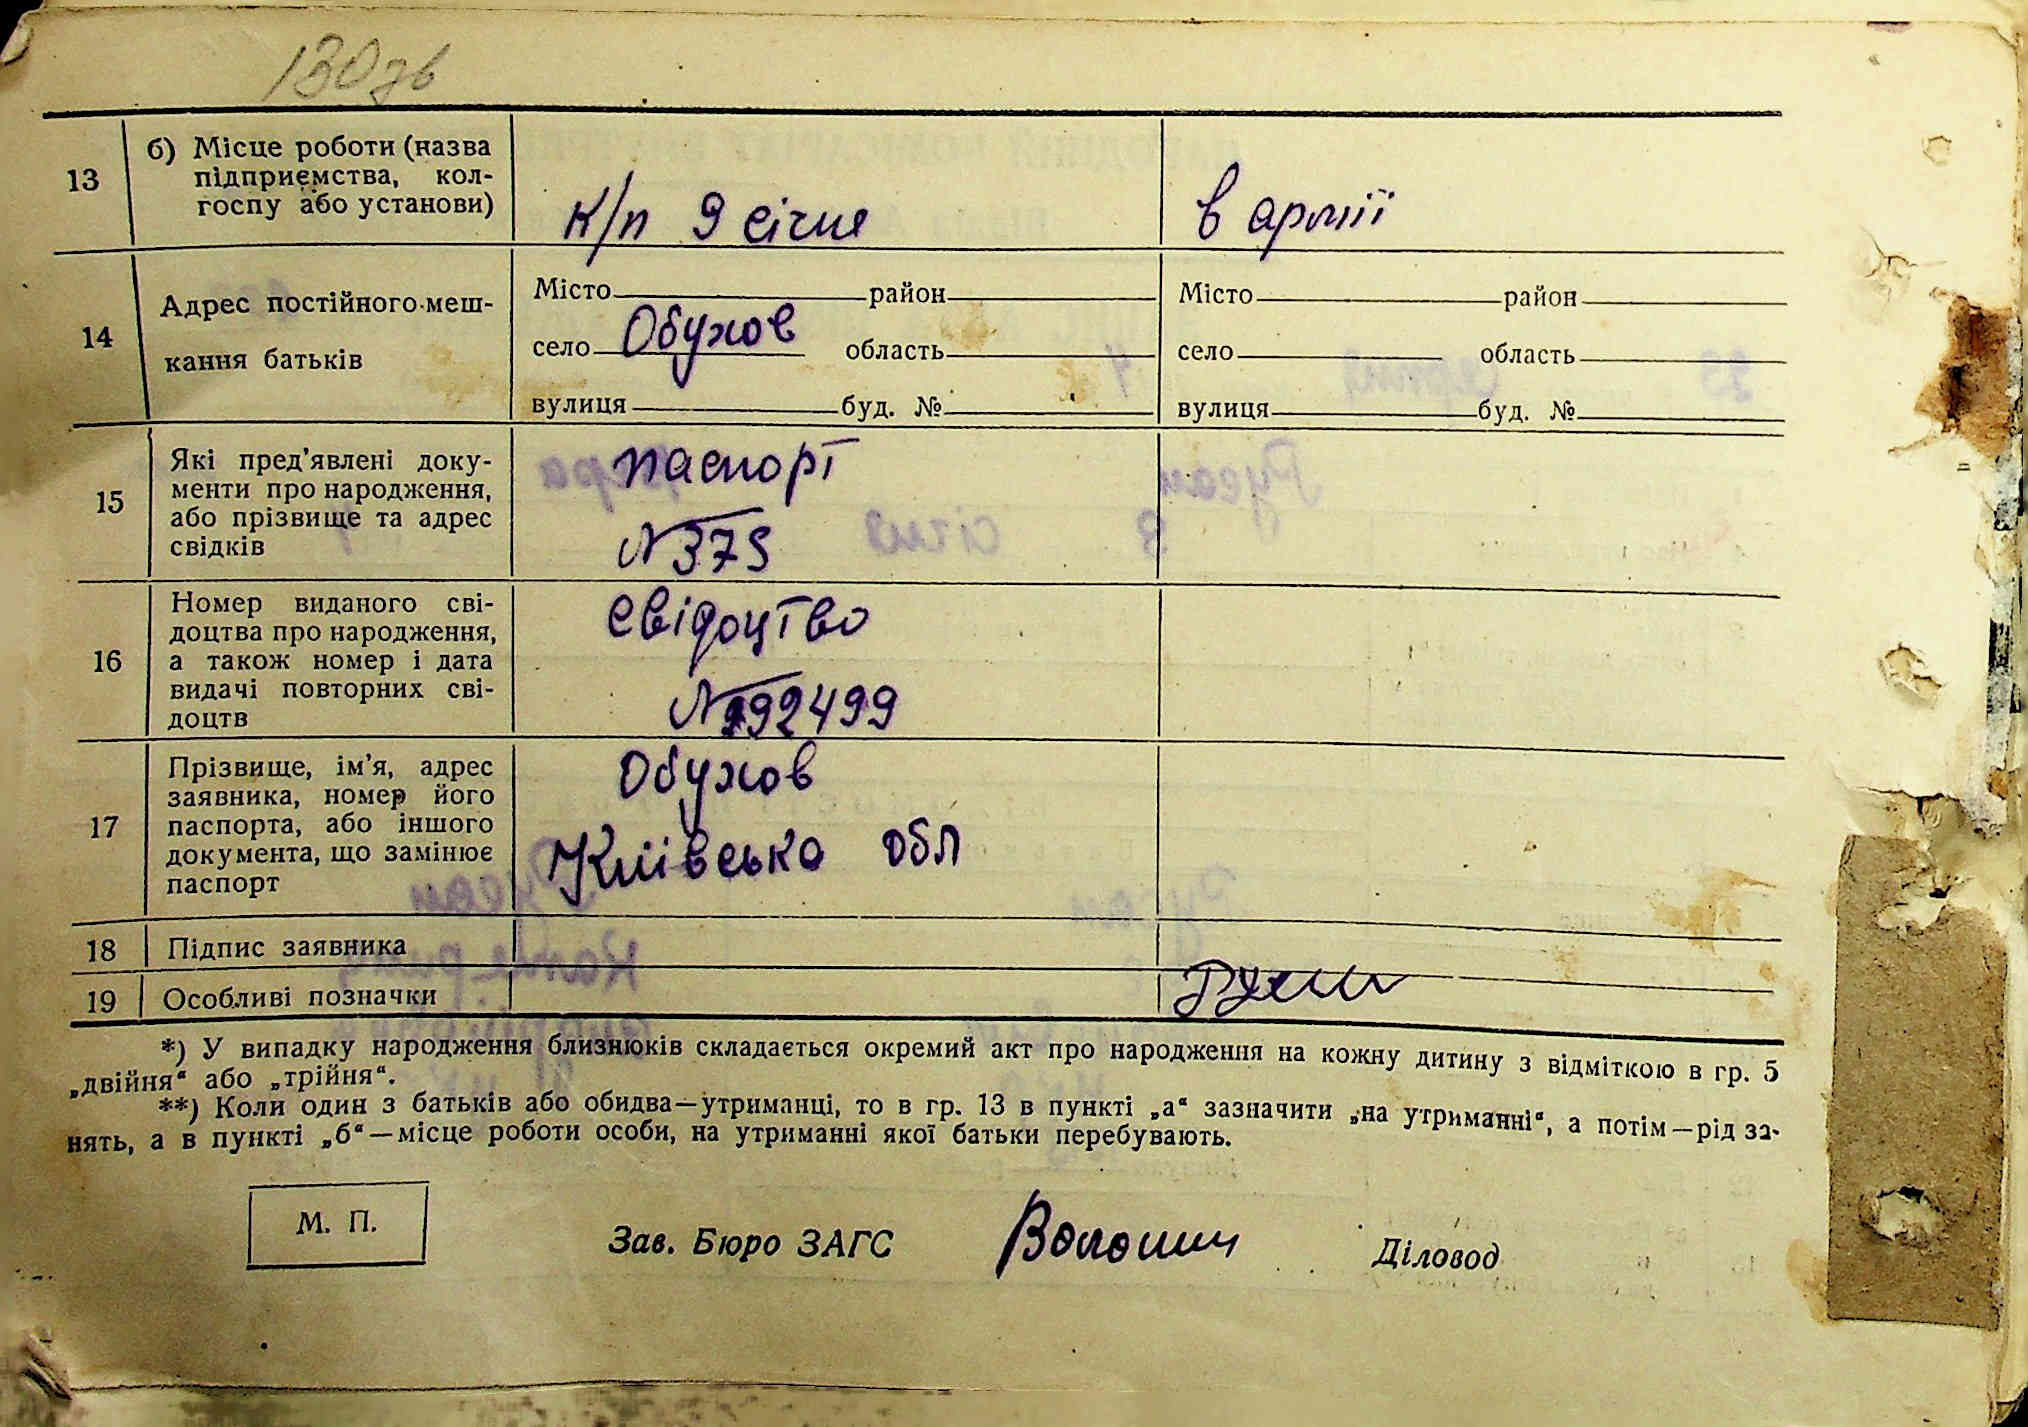 130зв
13
б) Місце роботи (назва
підприємства, кол-
госпу або установи)
к/п 9 січня
в армії
14
Адрес постійного меш-
кання батьків
Місто район
село Обухов область
вулиця буд. №
Місто район
село область
вулиця буд. №
15
Які пред’явлені доку-
менти про народження,
або прізвище та адрес
свідків
паспорт
№ 375
16
Номер виданого сві-
доцтва про народження,
а також номер і дата
видачі повторних сві-
доцтв
свідоцтво
№ 992499
17
Прізвище, ім’я, адрес
заявника, номер його
паспорта, або іншого
документа, що замінює
паспорт
Обухов
Київська обл
18 Підпис заявника
19 Особливі позначки
*) У випадку народження близнюків складається окремий акт про народження на кожну дитину з відміткою в гр. 5
„двійня“ або „трійня“.
**) Коли один з батьків або обидва—утриманці, то в гр. 13 в пункті „а“ зазначити „на утриманні“, а потім—рід за-
нять, а в пункті „б“—місце роботи особи, на утриманні якої батьки перебувають.
М. П.
Зав. Бюро ЗАГС Волошин Діловод